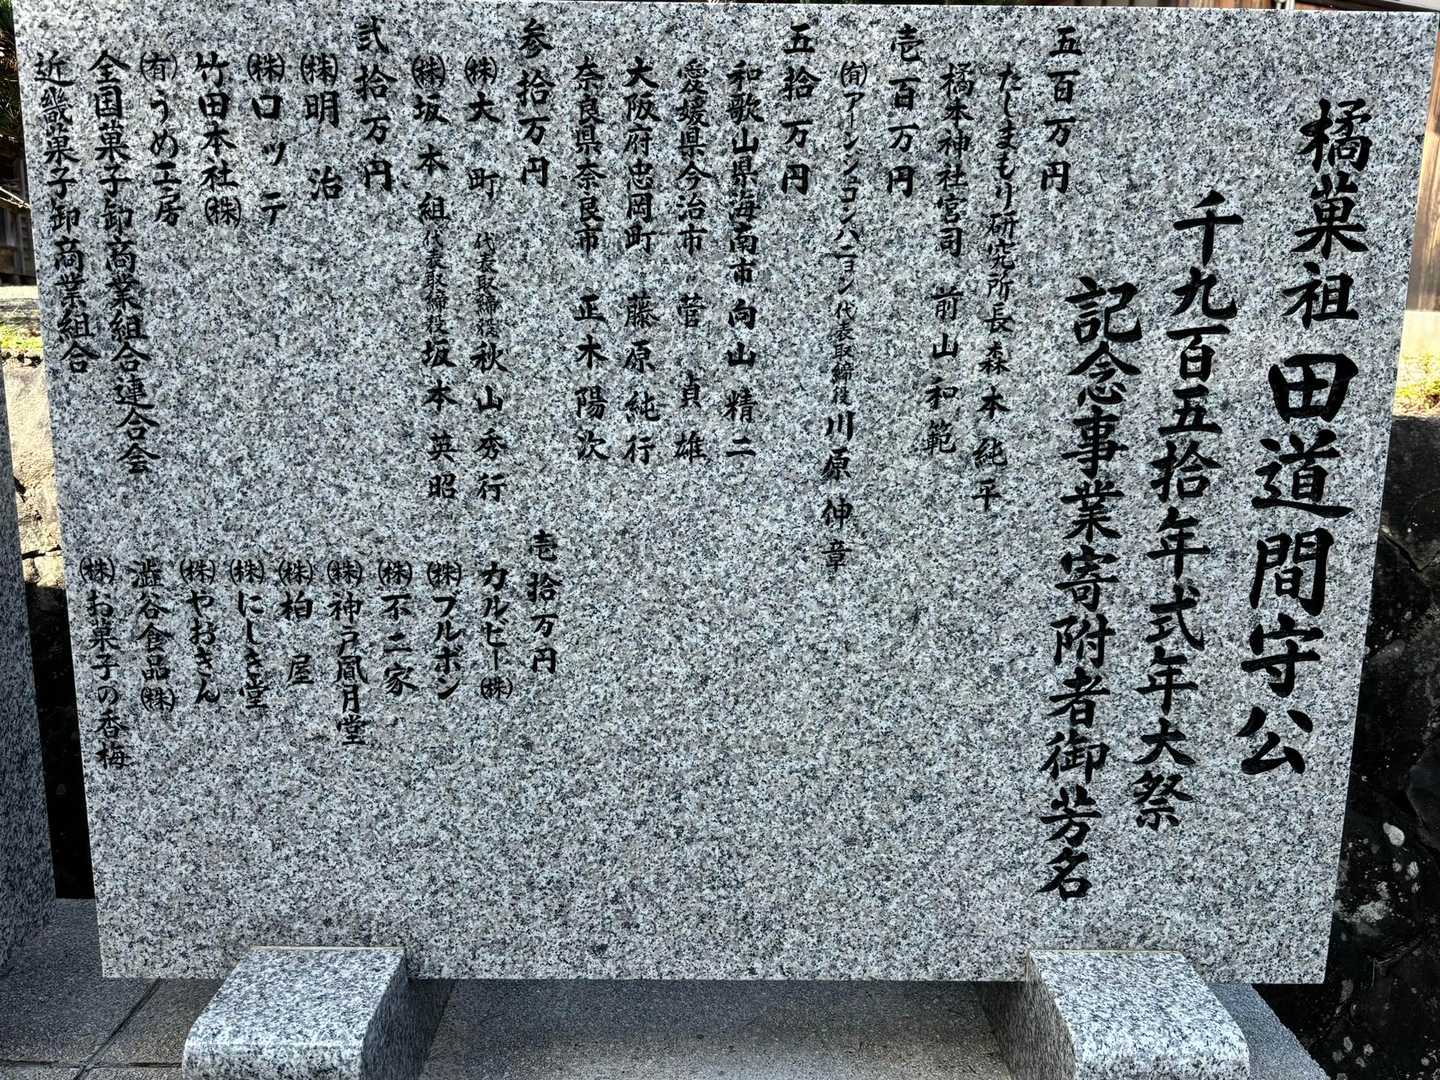 橘菓祖 田道間守公
千九百五拾年式年大祭
記念事業寄附者御芳名
五百万円
たじまもり研究所長 森本純平
橘本神社宮司 前山和範
壱百万円
㈲アーシンコンパニョン 代表取締役 川原伸章
五拾万円
和歌山県海南市 向山精二
愛媛県今治市 菅貞雄
大阪府忠岡町 藤原純行
奈良県奈良市 正木陽次
参拾万円
㈱大町 代表取締役 秋山秀行
㈱坂本組 代表取締役 坂本英昭
弐拾万円
㈱明治
㈱ロッテ
竹田本社㈱
㈲うめ工房
全国菓子卸商業組合連合会
近畿菓子卸商業組合
壱拾万円
カルビー㈱
㈱ブルボン
㈱不二家
㈱神戸凮月堂
㈱柏屋
㈱にしき堂
㈱やおきん
澁谷食品㈱
㈱お菓子の香梅